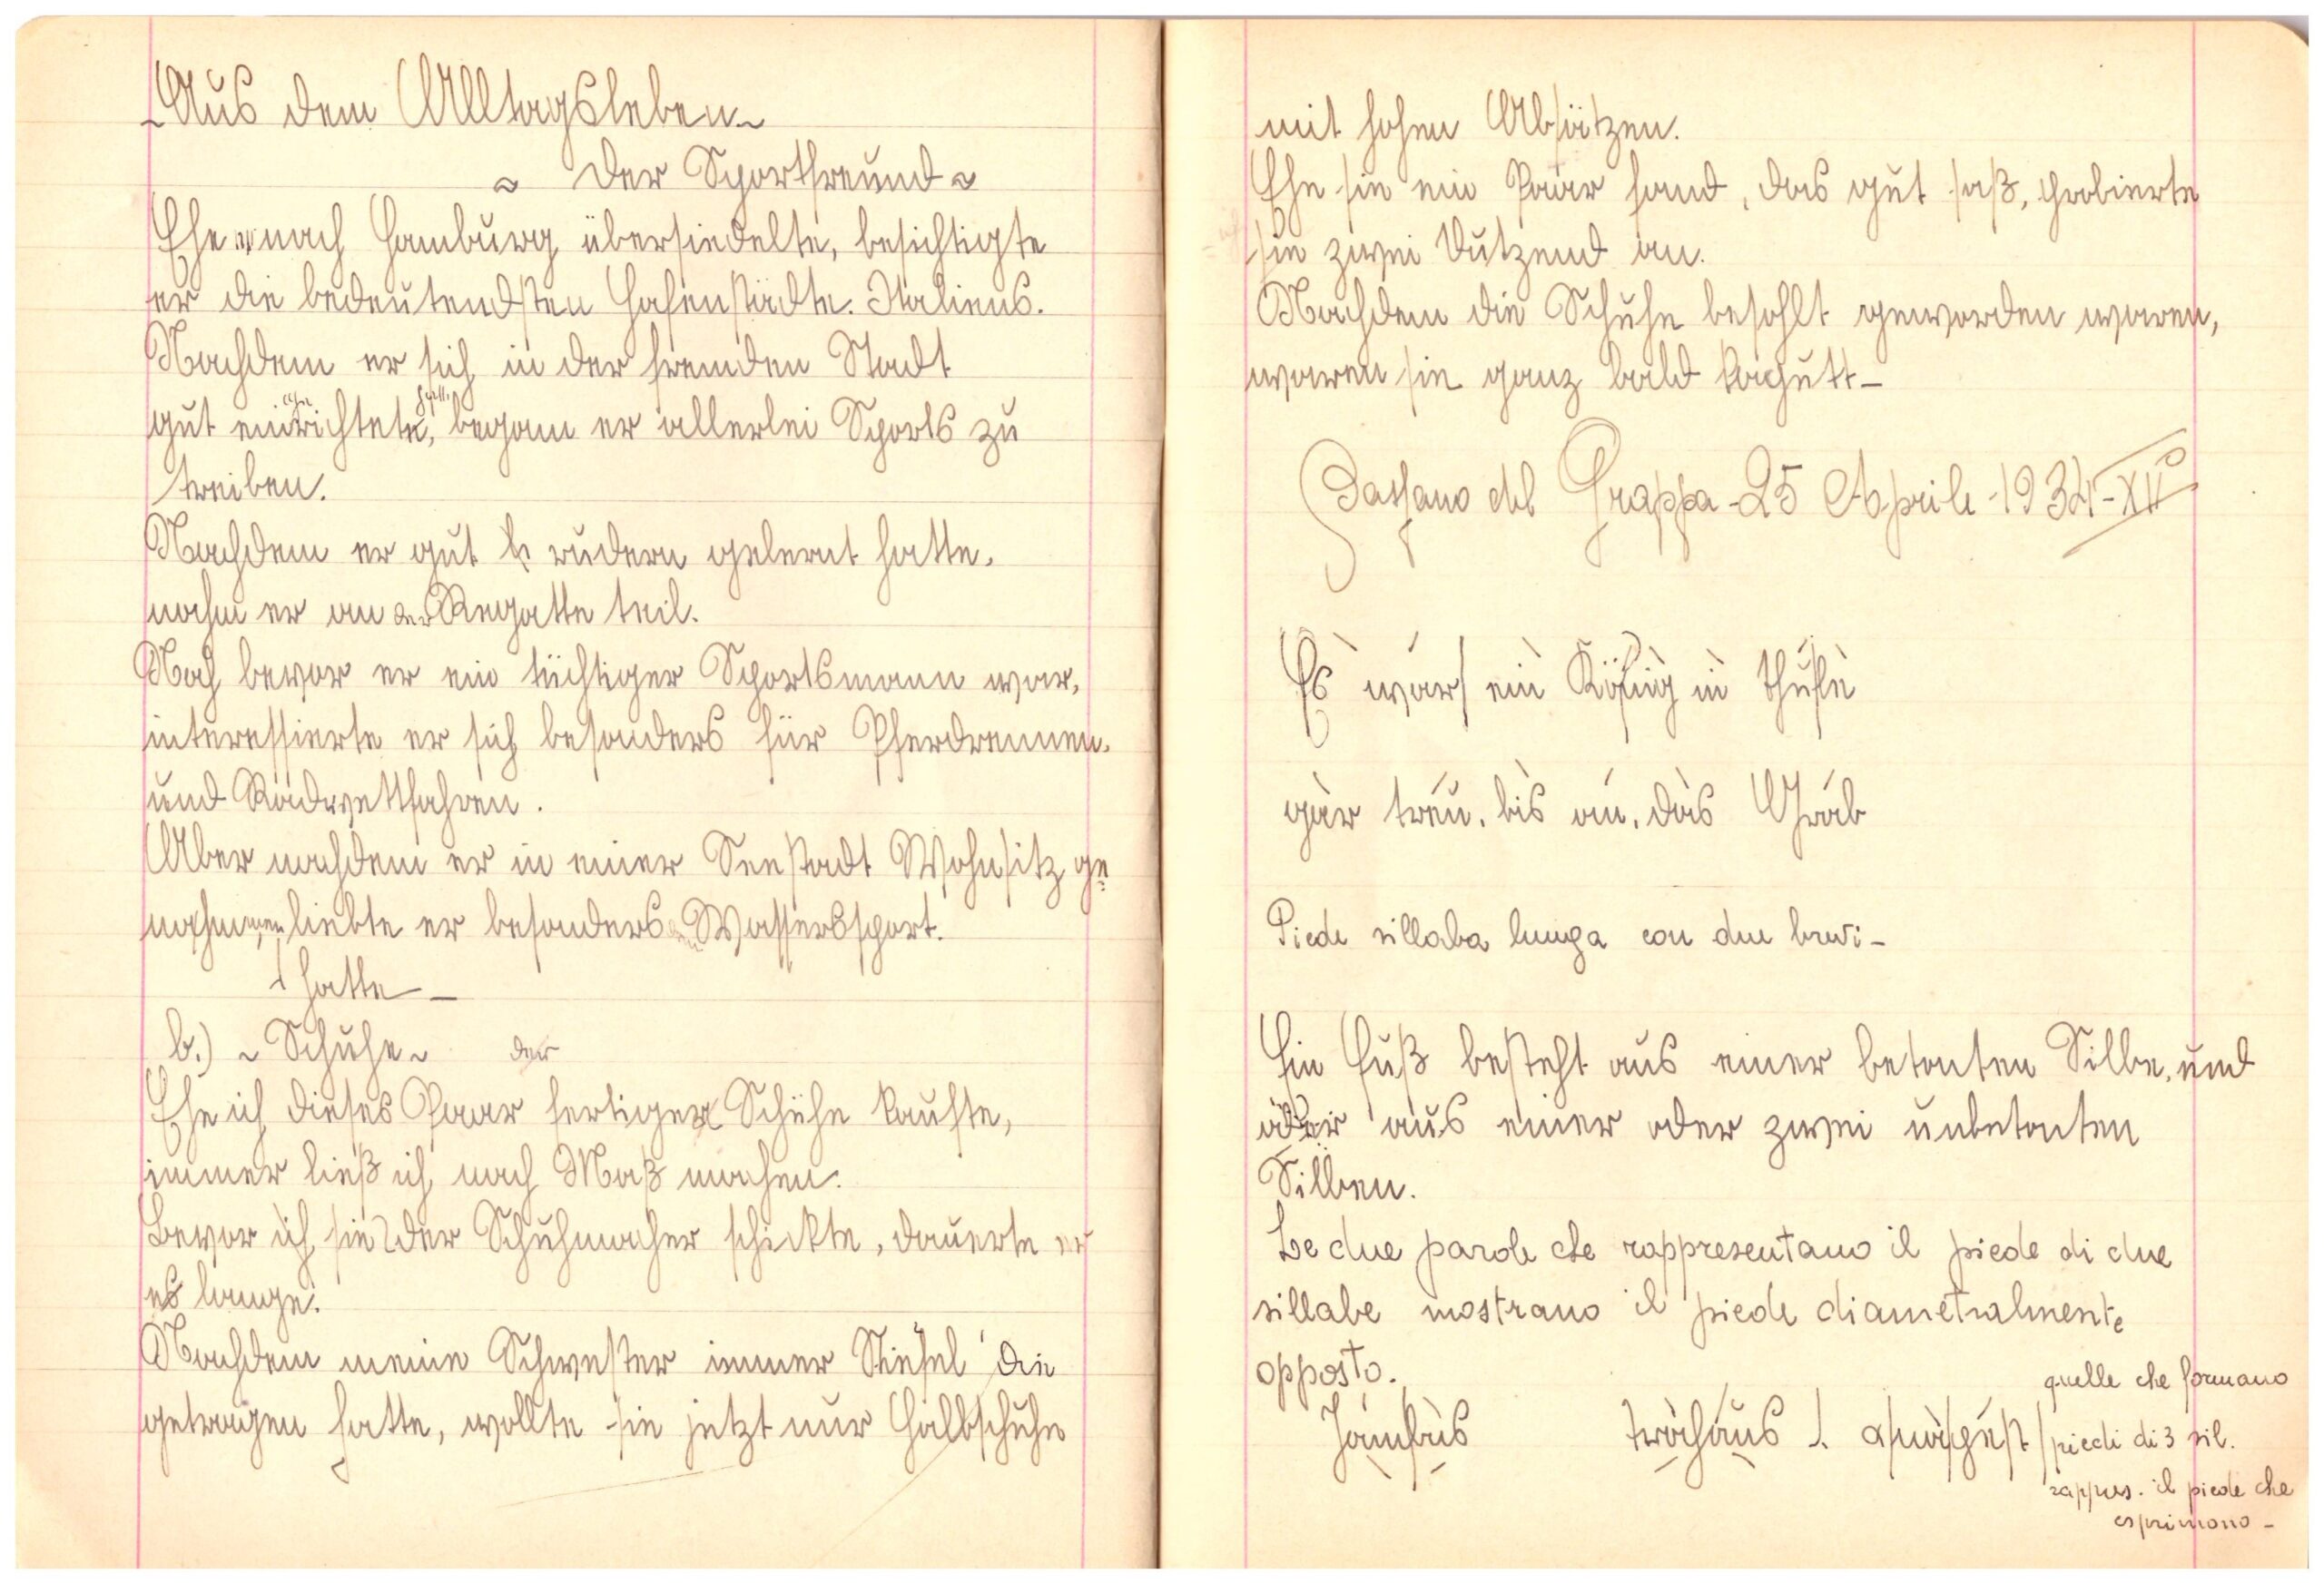 Aus dem Alltagsleben
Der Sportfreund
Ehe er nach Hamburg übersiedelte, besichtigte
er die bedeutendsten Hafenstädte. Italiens.
Nachdem er sich in der fremden Stadt
gut einrichtete, begann er allerlei Sports zu
treiben.
Nachdem er gut rudern gelernt hatte,
nahm er an der Regatte teil.
Noch bevor er ein tüchtiger Sportsmann war,
interessierte er sich besonders für Pferdrennen.
und Radwettfahren.
Aber nachdem er in einer Seestadt Wohnsitz ge
nohmmen liebte er besonders Wasserssport.
hatte
b.) Schuhe der
Ehe ich dieses Paar fertiger Schuhe kaufte,
immer ließ ich nach Maß machen.
Bevor ich sie der Schuhmacher schickte, dauerte er
es lange.
Nachdem meine Schwester immer Stiefel die
getragen hatte, wollte sie jetzt nur Halbschuhe
mit hohen Absätzen.
Ehe sie ein Paar fand, das gut saß, probierte
sie zwei Dutzend an.
Nachdem die Schuhe besohlt geworden waren,
waren sie ganz bald kaputt-
Bassano del Grappa-25 Aprile-1934-XII
Es war ein König in Thule
gar treu. bis an. das Grab
Piede sillaba lunga con due brevi-
Ein Fuß besteht aus einer betonten Silbe, und
oder aus einer oder zwei unbetonten
Silben.
Le due parole che rappresentano il piede di due
sillabe mostrano il piede diametralmente
opposto.
quelle che formano
Jambus trochäus anapäst piedi di 3 sil.
rappres. il piede che
esprimono-